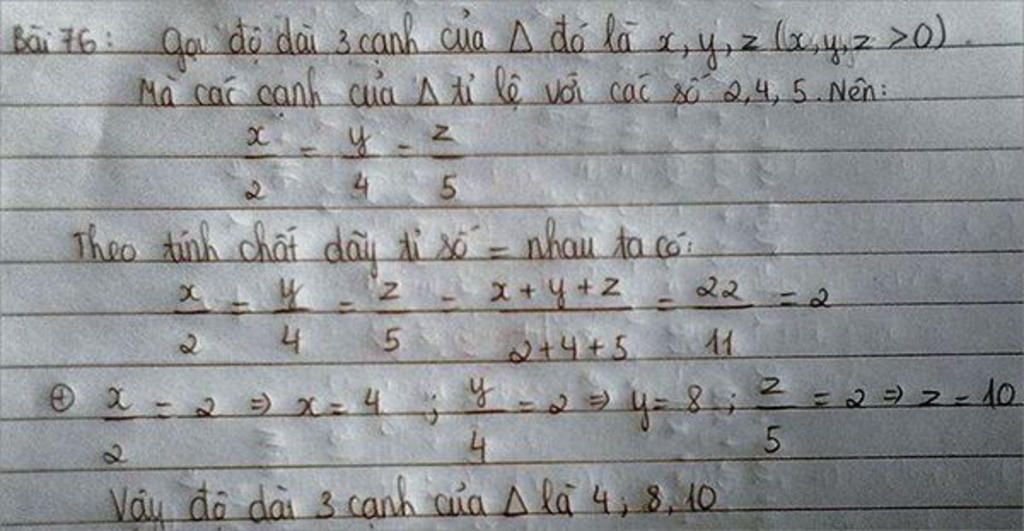 Bài 76: Gọi độ dài 3 cạnh của Δ đó là x, y, z (x, y, z > 0).
Mà các cạnh của Δ tỉ lệ với các số 2, 4, 5. Nên:
x/2 = y/4 = z/5
Theo tính chất dãy tỉ số = nhau ta có:
x/2 = y/4 = z/5 = x + y + z/2 + 4 + 5 = 22/11 = 2
⊕ x/2 = 2 ⇒ x = 4 ; y/4 = 2 ⇒ y = 8 ; z/5 = 2 ⇒ z = 10
Vậy độ dài 3 cạnh của Δ là 4, 8, 10